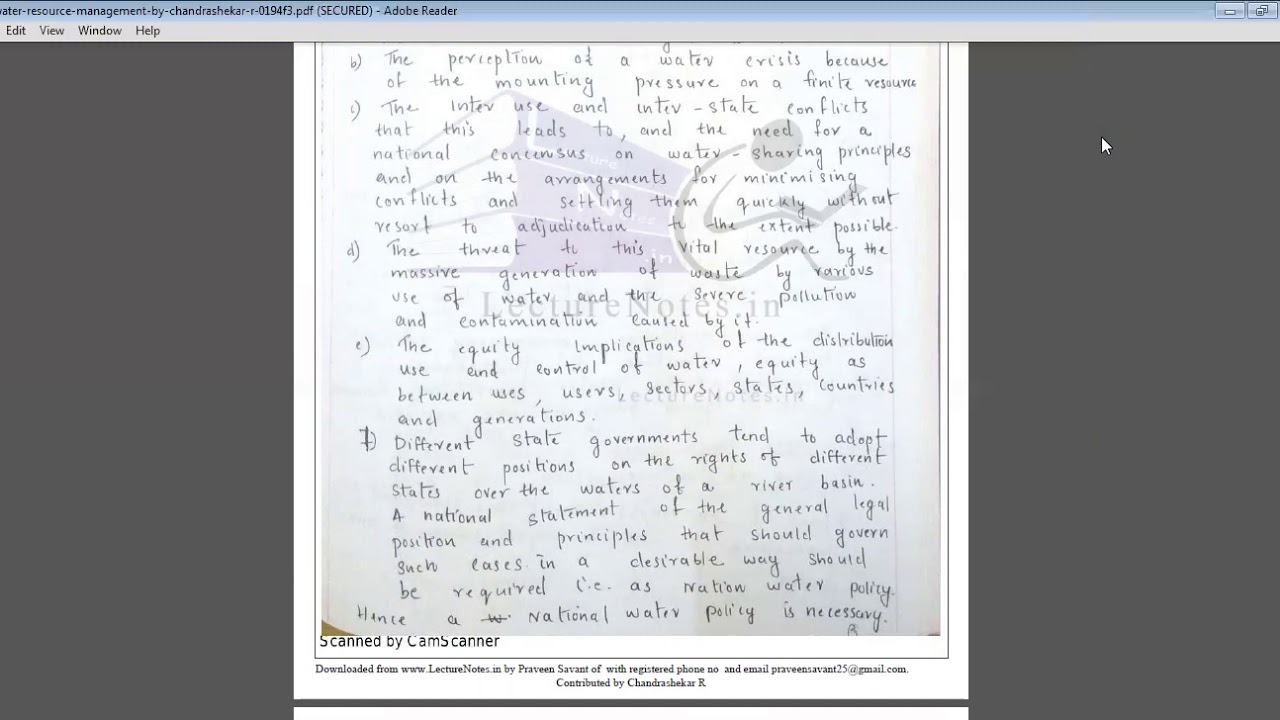 water-resource-management-by-chandrashekar-r-0194f3.pdf (SECURED) - Adobe Reader
Edit View Window Help
b) The perception of a water crisis because
of the mounting pressure on a finite resource
c) The inter use and inter-state conflicts
that this leads to, and the need for a
national concensus on water-sharing principles
and on the arrangements for minimising
conflicts and settling them quickly without
resort to adjudication to the extent possible.
d) The threat to this vital resource by the
massive generation of waste by various
use of water and the severe pollution
and contamination caused by it.
e) The equity implications of the distribution
use and control of water, equity as
between uses, users, sectors, states, countries
and generations.
f) Different state governments tend to adopt
different positions on the rights of different
states over the waters of a river basin.
A national statement of the general legal
position and principles that should govern
such cases in a desirable way should
be required i.e. as nation water policy.
Hence a National water policy is necessary.
LectureNotes.in
LectureNotes.in
Scanned by CamScanner
Downloaded from www.LectureNotes.in by Praveen Savant of with registered phone no and email praveensavant25@gmail.com.
Contributed by Chandrashekar R